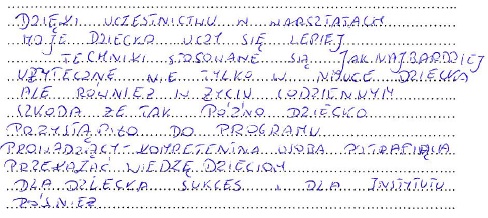 DZIĘKI UCZESTNICTWU W WARSZTATACH
MOJE DZIECKO UCZY SIĘ LEPIEJ
TECHNIKI STOSOWANE SĄ JAK NAJBARDZIEJ
UŻYTECZNE NIE TYLKO W NAUCE DZIECKA
ALE RÓWNIEŻ W ŻYCIU CODZIENNYM
SZKODA ŻE TAK PÓŹNO DZIECKO
PRZYSTĄPIŁO DO PROGRAMU
PROWADZĄCY - KOMPETENTNA OSOBA POTRAFIĄCA
PRZEKAZAĆ WIEDZĘ DZIECIOM
DLA DZIECKA SUKCES I DLA INSTYTUTU
RÓWNIEŻ